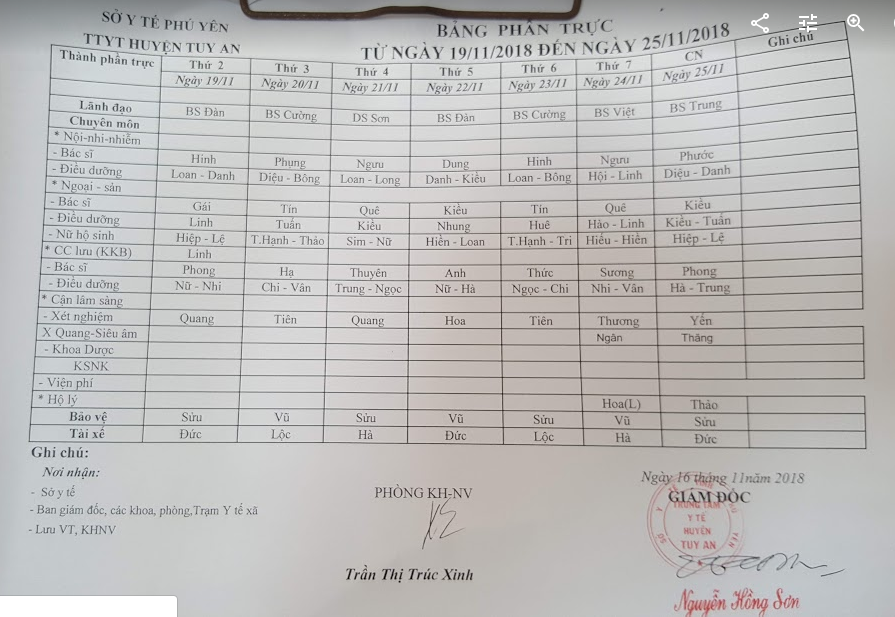 SỞ Y TẾ PHÚ YÊN
TTYT HUYỆN TUY AN
BẢNG PHÂN TRỰC
TỪ NGÀY 19/11/2018 ĐẾN NGÀY 25/11/2018
Thành phần trực Thứ 2 Thứ 3 Thứ 4 Thứ 5 Thứ 6 Thứ 7 CN Ghi chú
Ngày 19/11 Ngày 20/11 Ngày 21/11 Ngày 22/11 Ngày 23/11 Ngày 24/11 Ngày 25/11
Lãnh đạo BS Đàn BS Cường DS Sơn BS Đàn BS Cường BS Việt BS Trung
Chuyên môn
* Nội-nhi-nhiễm
- Bác sĩ Hinh Phụng Ngưu Dung Hinh Ngưu Phước
- Điều dưỡng Loan - Danh Diệu - Bông Loan - Long Danh - Kiều Loan - Bông Hội - Linh Diệu - Danh
* Ngoại - sản
- Bác sĩ Gái Tín Quê Kiều Tín Quê Kiều
- Điều dưỡng Linh Tuấn Kiều Nhung Huê Hảo - Linh Kiều - Tuấn
- Nữ hộ sinh Hiệp - Lệ T.Hạnh - Thảo Sim - Nữ Hiền - Loan T.Hạnh - Tri Hiếu - Hiền Hiệp - Lệ
* CC lưu (KKB) Linh
- Bác sĩ Phong Hạ Thuyên Anh Thức Sương Phong
- Điều dưỡng Nữ - Nhi Chi - Vân Trung - Ngọc Nữ - Hà Ngọc - Chi Nhi - Vân Hà - Trung
* Cận lâm sàng
- Xét nghiệm Quang Tiên Quang Hoa Tiên Thương Yến
X Quang-Siêu âm Ngân Thăng
- Khoa Dược
KSNK
- Viện phí
* Hộ lý Hoa(L) Thảo
Bảo vệ Sửu Vũ Sửu Vũ Sửu Vũ Sửu
Tài xế Đức Lộc Hà Đức Lộc Hà Đức
Ghi chú:
Nơi nhận:
- Sở y tế
- Ban giám đốc, các khoa, phòng,Trạm Y tế xã
- Lưu VT, KHNV
PHÒNG KH-NV
Trần Thị Trúc Xinh
Ngày 16 tháng 11năm 2018
GIÁM ĐỐC
TRUNG TÂM
Y TẾ
HUYỆN
TUY AN
Nguyễn Hồng Sơn